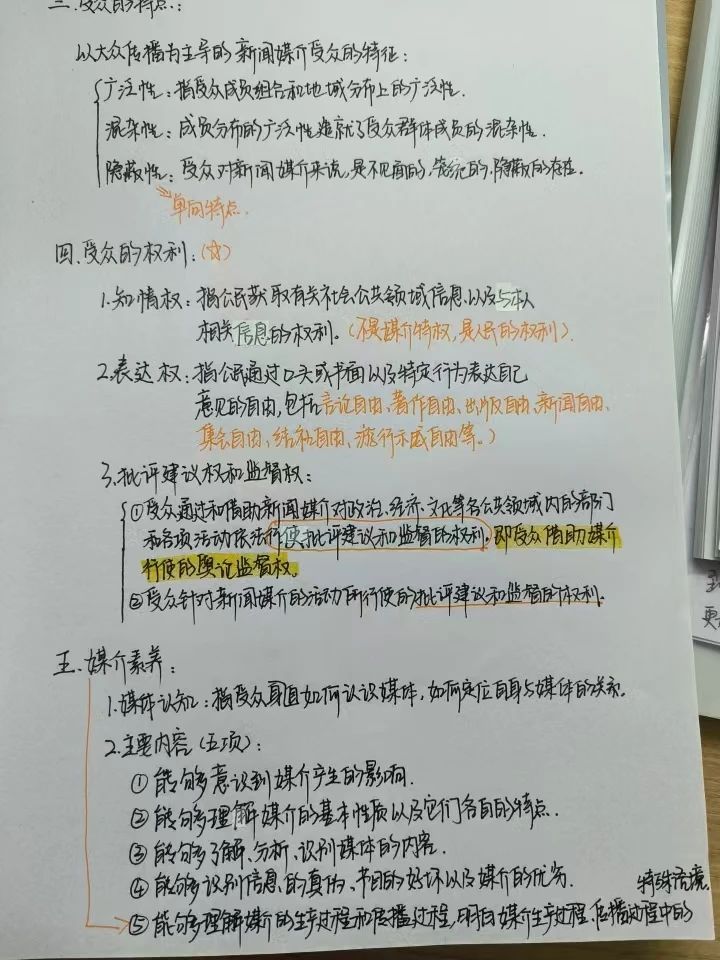 三.受众的特点：
以大众传播为主导的新闻媒介受众的特征：
广泛性：指受众成员组合和地域分布上的广泛性.
混杂性：成员分布的广泛性造就了受众群体成员的混杂性.
隐蔽性：受众对新闻媒介来说，是不见面的，笼统的，隐蔽的存在.
单向特点.
四.受众的权利：(☆)
1.知情权：指公民获取有关社会公共领域信息以及与本人
相关信息的权利。(不是媒介特权，是人民的权利)
2.表达权：指公民通过口头或书面以及特定行为表达自己
意见的自由，包括言论自由、著作自由、出版自由、新闻自由、
集会自由、结社自由、游行示威自由等。)
3.批评建议权和监督权：
①受众通过和借助新闻媒介对政治、经济、文化等各公共领域内的部门
和各项活动依法行使批评建议和监督的权利，即受众借助媒介
行使的舆论监督权。
②受众针对新闻媒介的活动所行使的批评建议和监督的权利.
五.媒介素养：
1.媒体认知：指受众自身如何认识媒体，如何定位自身与媒体的关系.
2.主要内容(五项)：
①能够意识到媒介产生的影响.
②能够理解媒介的基本性质以及它们各自的特点.
③能够了解、分析、识别媒体的内容.
④能够识别信息的真伪、节目的好坏以及媒介的优劣.
特殊语境.
⑤能够理解媒介的生产过程和传播过程，明白媒介生产过程、传播过程中的
更